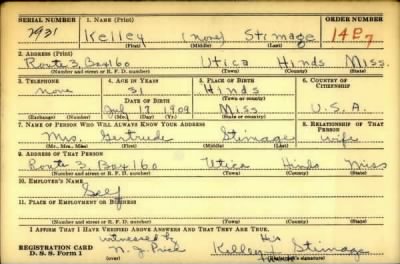 SERIAL NUMBER 1. NAME (Print) ORDER NUMBER
2931 Kelley (none) Stimage 1487
(First) (Middle) (Last)
2. ADDRESS (Print)
Route 3, Box 160 Utica Hinds Miss.
(Number and street or R. F. D. number) (Town) (County) (State)
3. TELEPHONE 4. AGE IN YEARS 5. PLACE OF BIRTH 6. COUNTRY OF CITIZENSHIP
none 31 Hinds
DATE OF BIRTH (Town or county)
July 1909 Miss U.S.A.
(Mo.) (Day) (Yr.) (State or country)
7. NAME OF PERSON WHO WILL ALWAYS KNOW YOUR ADDRESS 8. RELATIONSHIP OF THAT PERSON
Mrs. Gertrude Stimage Wife
(Mr., Mrs., Miss) (First) (Middle) (Last)
9. ADDRESS OF THAT PERSON
Route 3, Box 160 Utica Hinds Miss
(Number and street or R. F. D. number) (Town) (County) (State)
10. EMPLOYER'S NAME
Self
11. PLACE OF EMPLOYMENT OR BUSINESS
(Number and street or R. F. D. number) (Town) (County) (State)
I AFFIRM THAT I HAVE VERIFIED ABOVE ANSWERS AND THAT THEY ARE TRUE.
witnessed by His
REGISTRATION CARD N. J. Kelley Stimage
D. S. S. Form 1 (Registrant's signature)